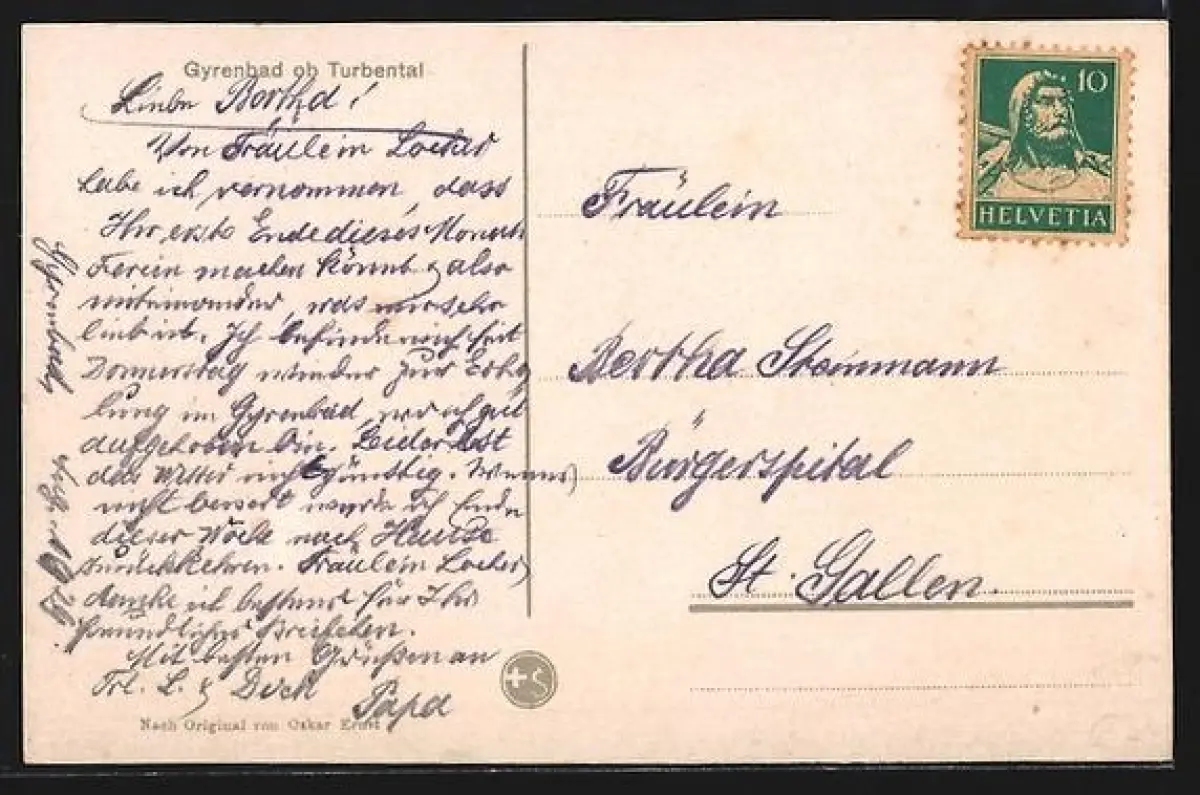 Gyrenbad ob Turbental
Liebe Bertha!
Von Fräulein Locher
habe ich vernommen, dass
Ihr erst Ende dieses Monats
Ferien machen könnt & also
miteinander, was mir sehr
lieb ist. Ich befinde mich seit
Donnerstag wieder zur Erho
lung im Gyrenbad, wo ich gut
aufgehoben bin. Leider ist
das Wetter nicht günstig. Wenn es
nicht bessert werde ich Ende
dieser Woche nach Hause
zurückkehren. Fräulein Locher
danke ich bestens für Ihr
freundliches Briefchen.
Mit besten Grüßen an
Frl. L. & Dich
Papa
Gyrenbad,
Nach Original von Oskar Ernst
10
HELVETIA
Fräulein
Bertha Steinmann
Bürgerspital
St. Gallen.